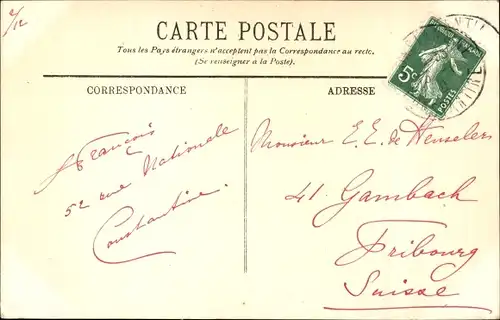 2/12
CARTE POSTALE
Tous les Pays étrangers n'acceptent pas la Correspondance au recto.
(Se renseigner à la Poste).
CORRESPONDANCE
ADRESSE
François
52 rue Nationale
Constantine.
Monsieur E. E. de Heuselers
41. Gambach
Fribourg
Suisse
5c
POSTES